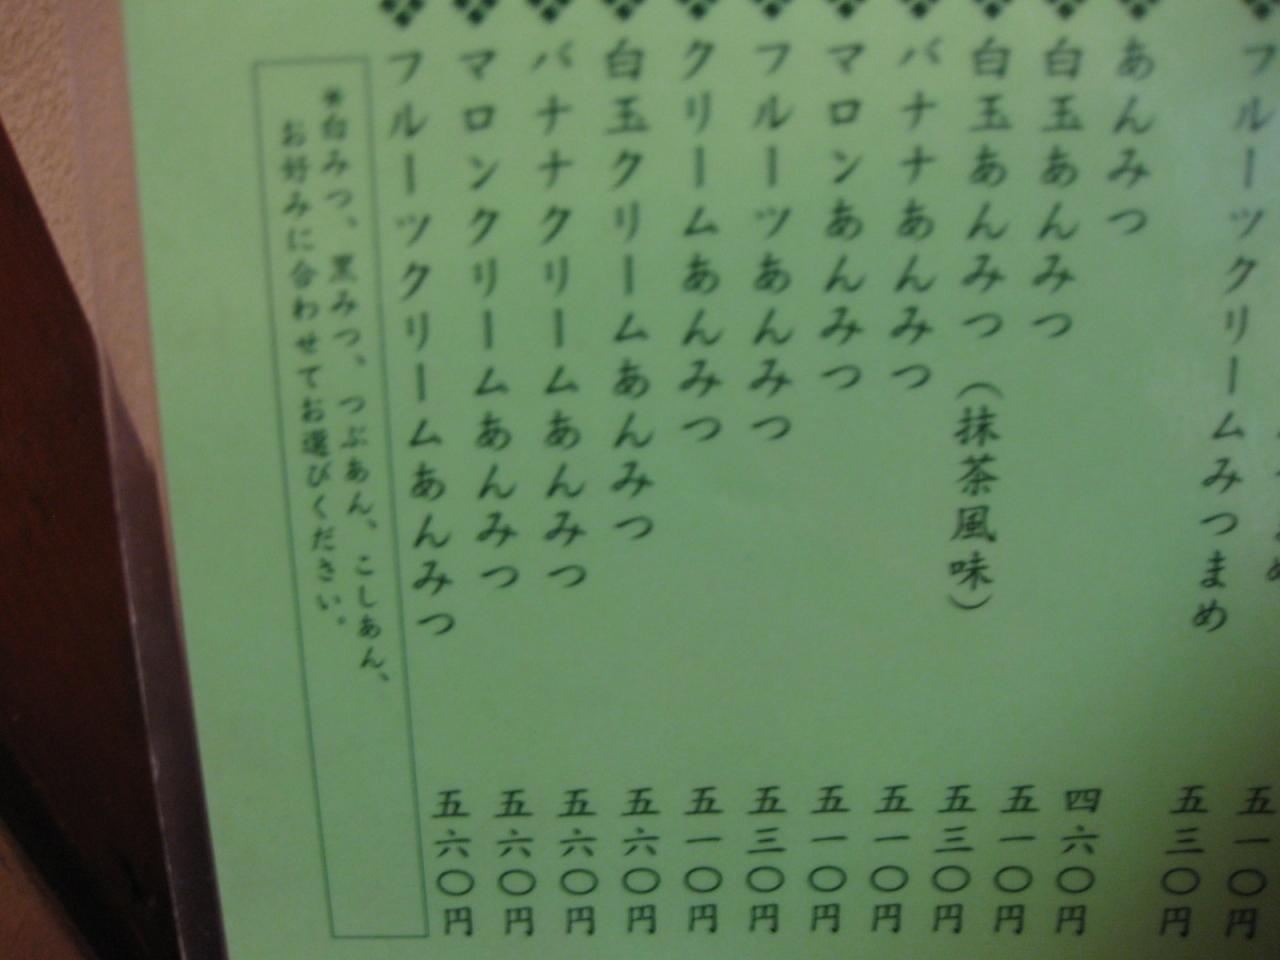 フルーツクリームみつまめ 五三〇円
あんみつ 四六〇円
白玉あんみつ 五一〇円
白玉あんみつ(抹茶風味) 五三〇円
バナナあんみつ 五一〇円
マロンあんみつ 五一〇円
フルーツあんみつ 五三〇円
クリームあんみつ 五一〇円
白玉クリームあんみつ 五六〇円
バナナクリームあんみつ 五六〇円
マロンクリームあんみつ 五六〇円
フルーツクリームあんみつ 五六〇円
※白みつ、黒みつ、つぶあん、こしあん、
お好みに合わせてお選びください。